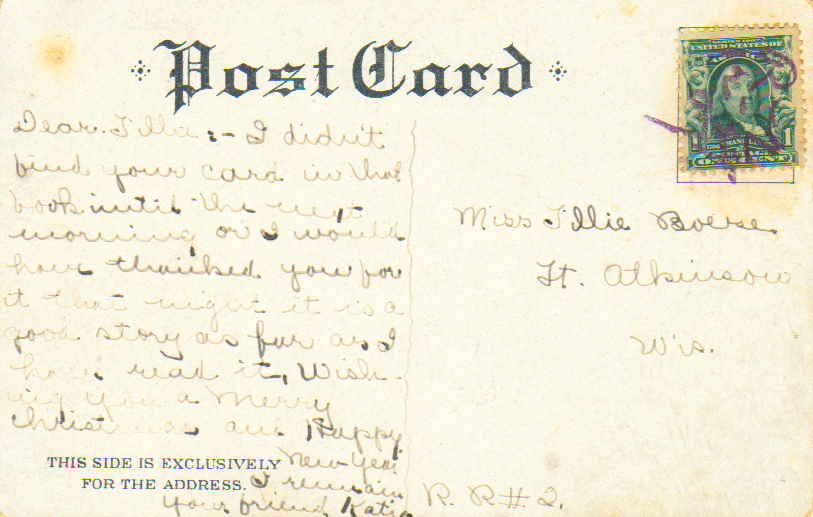 Post Card
UNITED STATES OF
ONE CENT
Dear Tillie :- I didn't
find your card in that
book until the next
morning or I would
have thanked you for
it that night it is a
good story as far as I
have read it, Wish-
ing you a Merry
Christmas and Happy
New Year
I remain
your friend Katie
THIS SIDE IS EXCLUSIVELY
FOR THE ADDRESS.
Miss Tillie Boese
Ft. Atkinson
Wis.
R. R # 2.